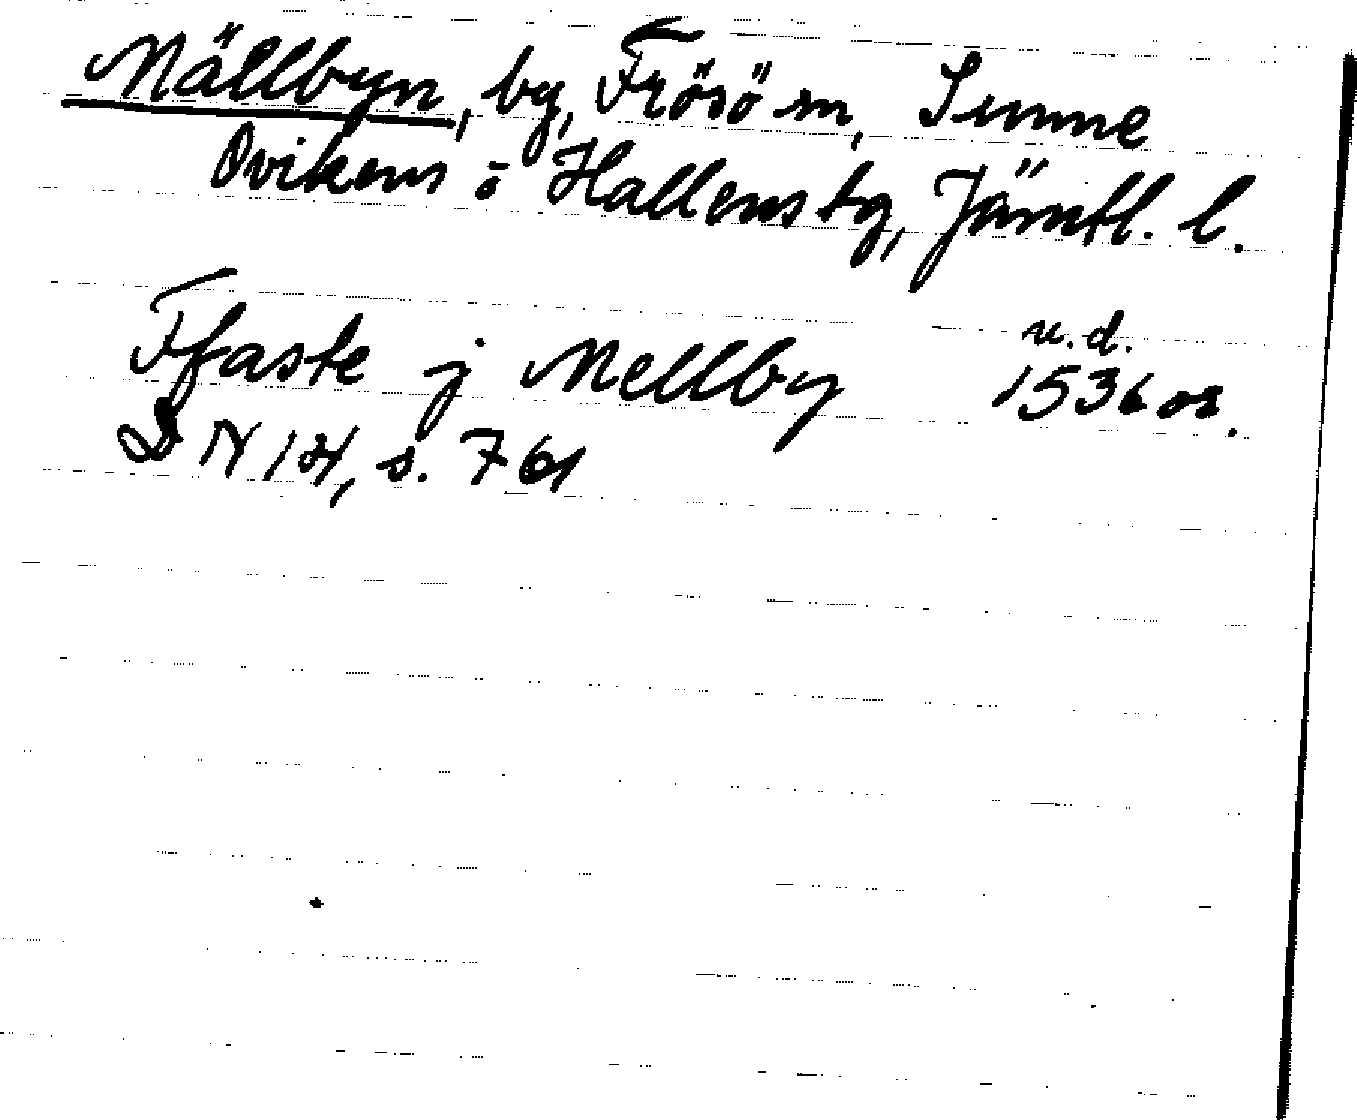 Mällbyn, by, Frösö sn, Sunne
Ovikens o Hallens tg, Jämtl. l.
Ffaste j Mellby u.d. 1536 os.
DN 14, s. 761